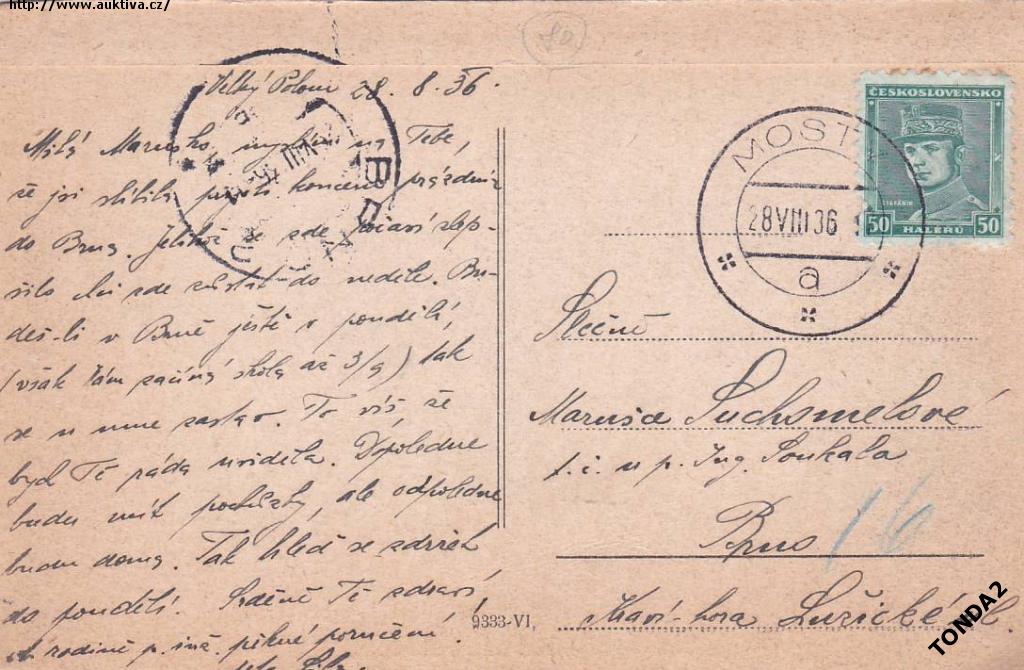 http://www.auktiva.cz/
80
Velký Polom 28. 8. 36.
Milá Marusko, myslím na Tebe,
že jsi slíbila přijeti koncem prázdnin
do Brna. Jelikož se zde počasí zlep-
šilo chci zde zůstat do neděle. Bu-
deš-li v Brně ještě v pondělí,
(však Vám začíná škola až 3/9) tak
se u mne zastav. To víš, že
bych Tě ráda uviděla. Dopoledne
budu mít pochůzky, ale odpoledne
budu doma. Tak hleď se zdržet
do pondělí. Srdečně Tě zdraví,
a rodině p. inž. pěkné poručení
9333-VI.
ČESKOSLOVENSKO
ŠTEFÁNIK
50 HALÉŘŮ 50
MOSTY
28 VIII 36
a
BRNO
VIII
Slečně
Maruše Suchomelové
t. č. u p. Ing. Soukala
Brno
16
Kraví-hora Lužická ul.
TONDA2